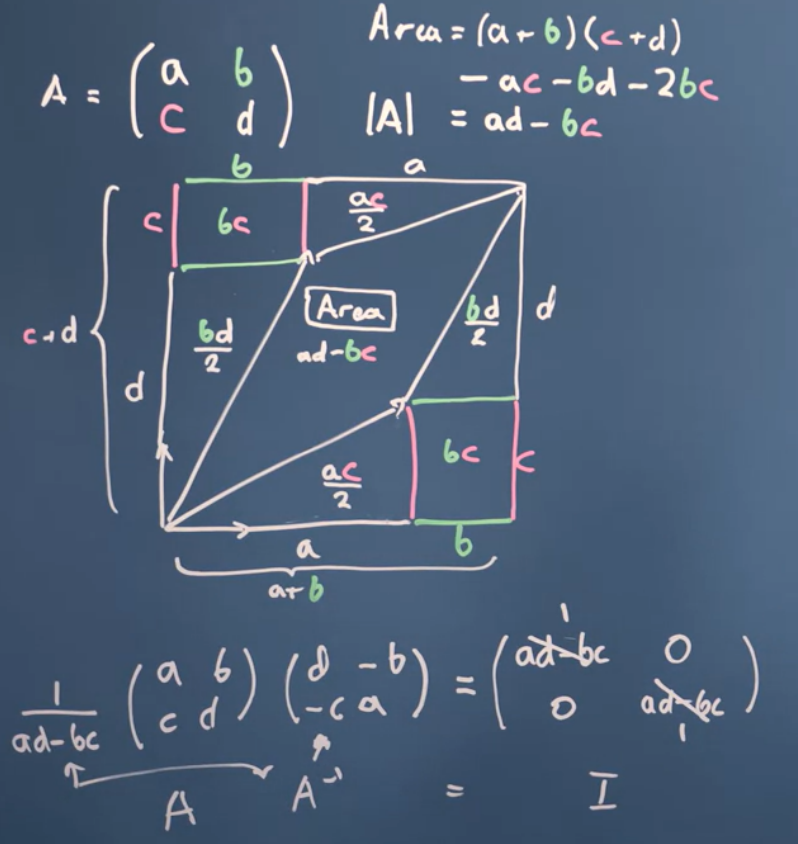 Area = (a+b)(c+d)
- ac - bd - 2bc
A = (a b
c d)
|A| = ad - bc
b
a
c
bc
ac/2
c+d
bd/2
Area
ad-bc
bd/2
d
d
bc
c
ac/2
a
b
a+b
1/(ad-bc) (a b
c d) (d -b
-c a) = (ad-bc 1 0
0 ad-bc 1)
A A⁻¹ = I